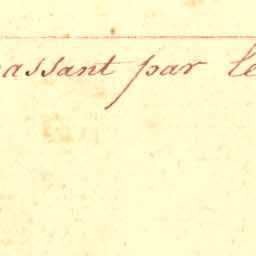 assant par le